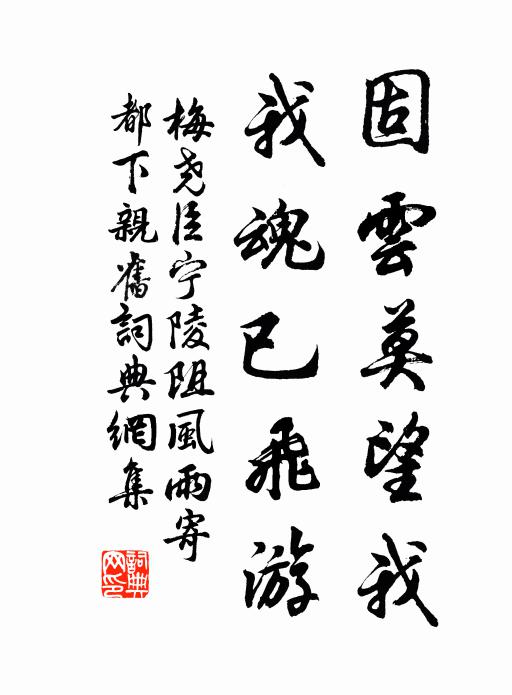 固雲莫望我
我魂已飛游
梅尧臣宁陵阻風雨寄
都下親舊詞典網集
詞典網印